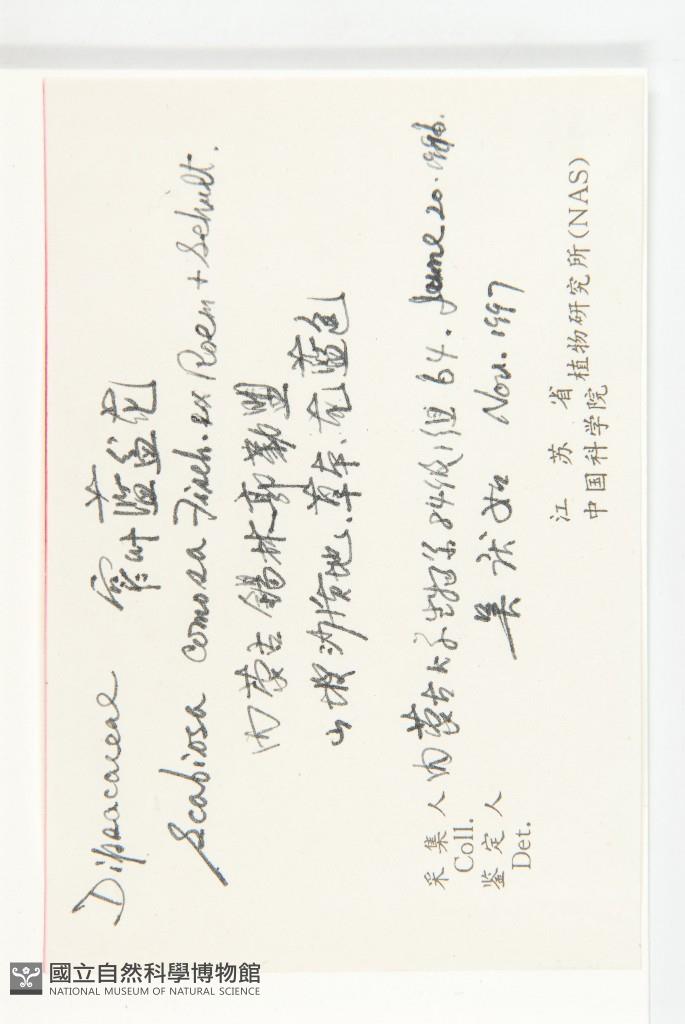 Dipsacaceae 窄叶蓝盆花
Scabiosa comosa Fisch. ex Roem + Schult.
内蒙古 锡林郭勒盟
山坡沙质地、草本、花蓝色
采集人 内蒙古大学生物系84级1组 64. June 20. 1986.
Coll.
鉴定人 吴 如 Nov. 1997
Det.
江苏省植物研究所(NAS)
中国科学院
國立自然科學博物館
NATIONAL MUSEUM OF NATURAL SCIENCE